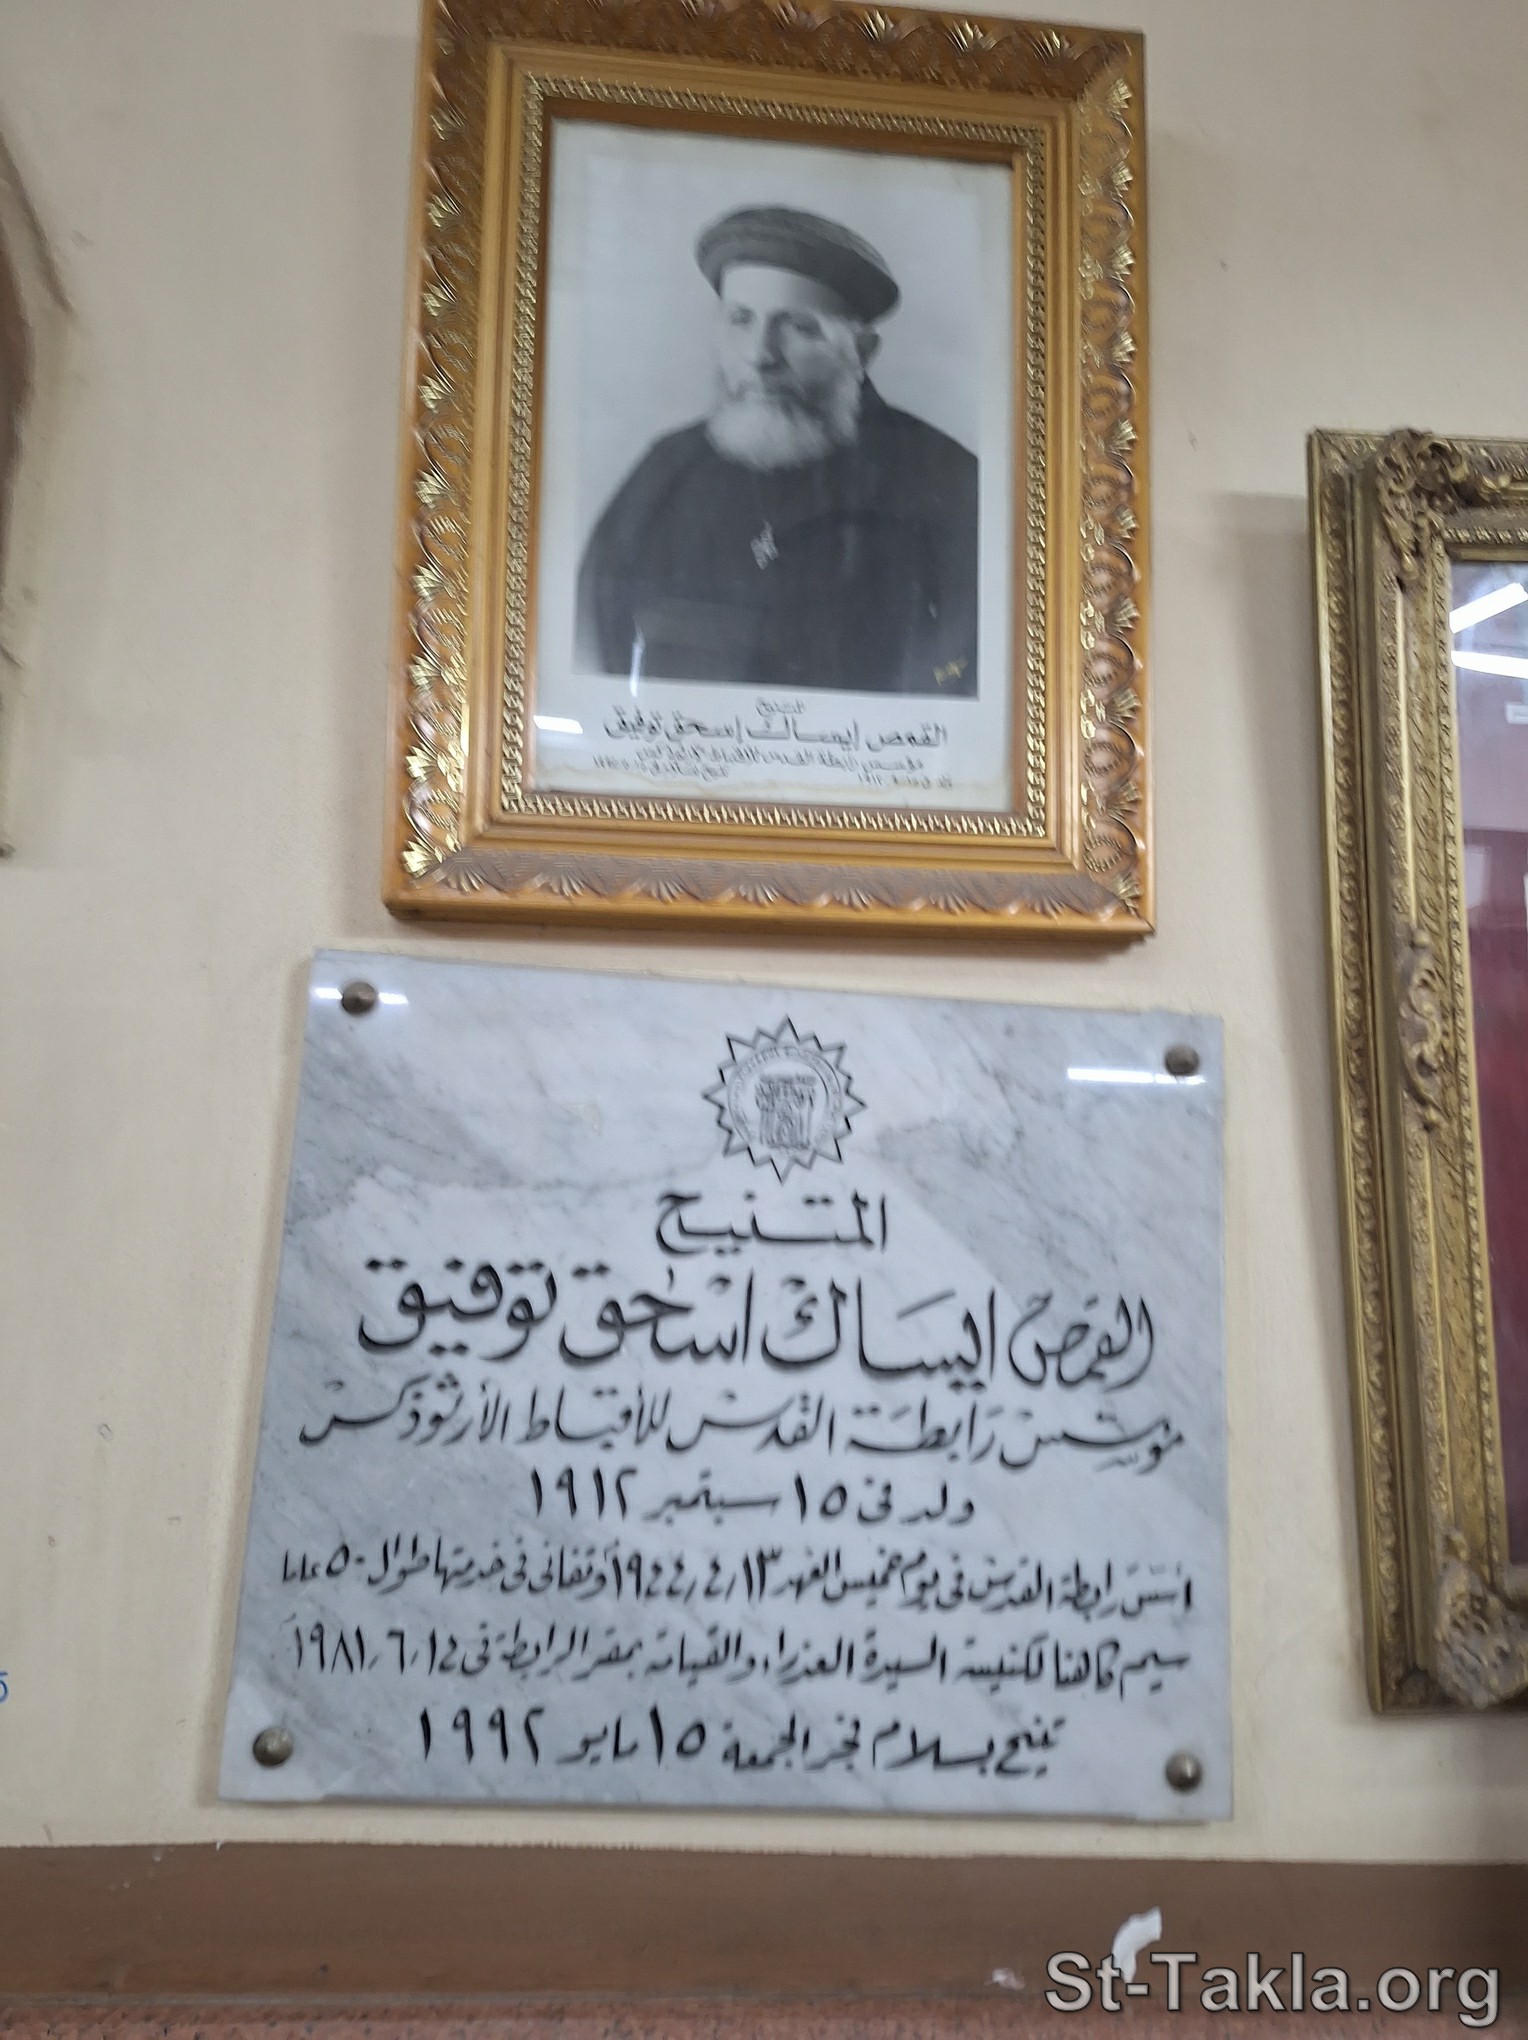 المتنيح
القمص إيساك إسحق توفيق
مؤسس رابطة القدس للأقباط
المتنيح
القمص ايساك اسحٰق توفيق
مؤسس رَابطَة القدس للأقباط الأرثوذكس
ولد فى ١٥ سبتمبر ١٩١٢
أسَسَ رابطة القدس فى يوم خميس العهد ١٣/٤/١٩٤٤ وتفانى فى خدمتها طوال ٥٠ عاما
سيم كاهنا لكنيسة السيدة العذراء والقيامة بمقر الرابطة فى ١٤/٦/١٩٨١
تنيح بسلام فجر الجمعة ١٥ مايو ١٩٩٢
St-Takla.org